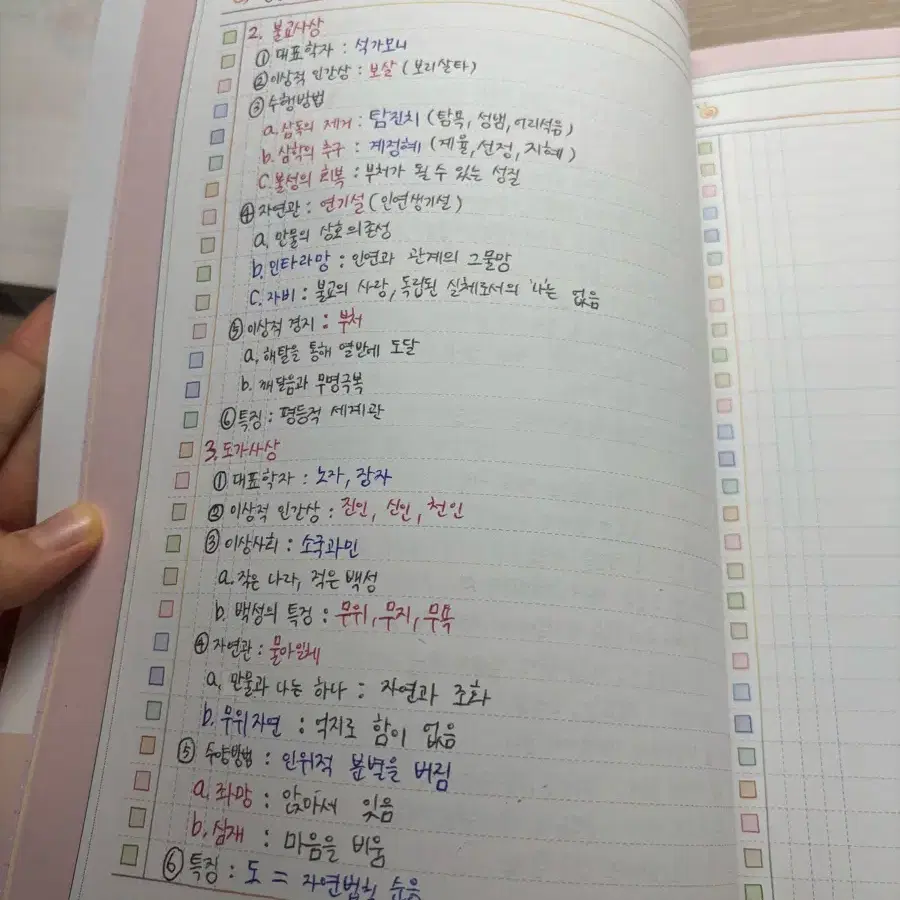 2. 불교사상
① 대표학자 : 석가모니
② 이상적 인간상 : 보살 (보리살타)
③ 수행방법
a. 삼독의 제거 : 탐진치 (탐욕, 성냄, 어리석음)
b. 삼학의 추구 : 계정혜 (계율, 선정, 지혜)
C. 불성의 회복 : 부처가 될 수 있는 성질
④ 자연관 : 연기설 (인연생기설)
a. 만물의 상호 의존성
b. 인타라망 : 인연과 관계의 그물망
C. 자비 : 불교의 사랑, 독립된 실체로서의 '나'는 없음
⑤ 이상적 경지 : 부처
a. 해탈을 통해 열반에 도달
b. 깨달음과 무명극복
⑥ 특징 : 평등적 세계관
3. 도가사상
① 대표학자 : 노자, 장자
② 이상적 인간상 : 진인, 신인, 천인
③ 이상사회 : 소국과민
a. 작은 나라, 적은 백성
b. 백성의 특징 : 무위, 무지, 무욕
④ 자연관 : 물아일체
a. 만물과 나는 하나 = 자연과 조화
b. 무위자연 : 억지로 함이 없음
⑤ 수양방법 : 인위적 분별을 버림
a. 좌망 : 앉아서 잊음
b. 심재 : 마음을 비움
⑥ 특징 : 도 = 자연법칙